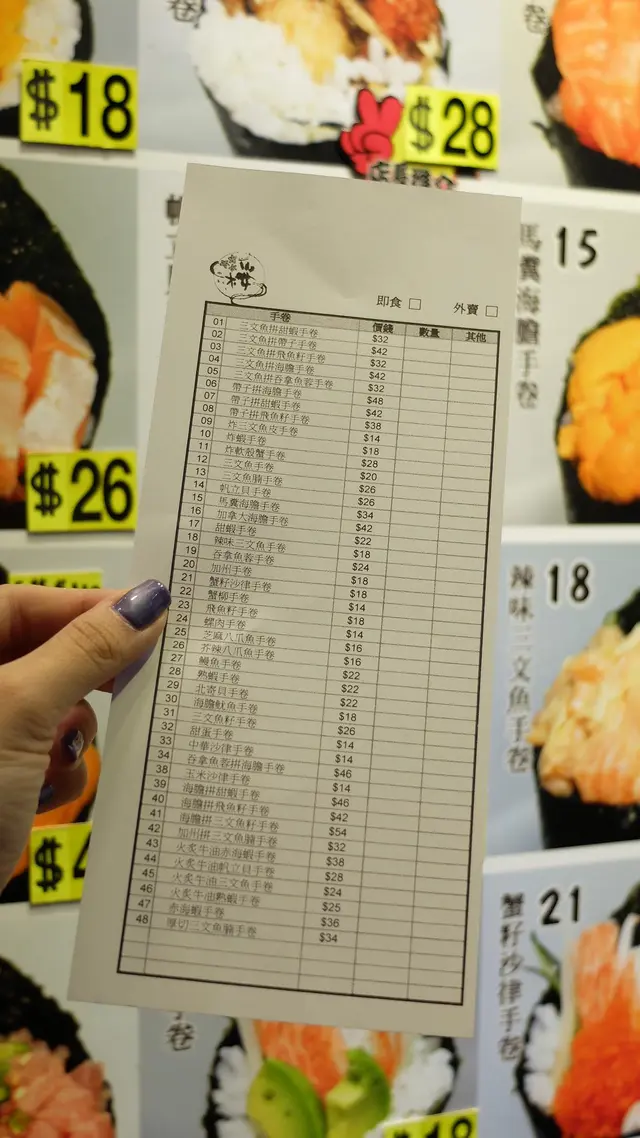 $18
$28
卷
即食 外賣
手卷 價錢 數量 其他
01 三文魚拼甜蝦手卷 $32
02 三文魚拼帶子手卷 $42
03 三文魚拼飛魚籽手卷 $32
04 三文魚拼海膽手卷 $42
05 三文魚拼吞拿魚蓉手卷 $32
06 帶子拼海膽手卷 $48
07 帶子拼甜蝦手卷 $42
08 帶子拼飛魚籽手卷 $38
09 炸三文魚皮手卷 $14
10 炸蝦手卷 $18
11 炸軟殼蟹手卷 $28
12 三文魚手卷 $20
13 三文魚腩手卷 $26
14 帆立貝手卷 $26
15 馬糞海膽手卷 $34
16 加拿大海膽手卷 $42
17 甜蝦手卷 $22
18 辣味三文魚手卷 $18
19 吞拿魚蓉手卷 $24
20 加州手卷 $18
21 蟹籽沙律手卷 $18
22 蟹柳手卷 $14
23 飛魚籽手卷 $18
24 螺肉手卷 $14
25 芝麻八爪魚手卷 $16
26 芥辣八爪魚手卷 $16
27 鰻魚手卷 $22
28 熟蝦手卷 $22
29 北寄貝手卷 $22
30 海膽魷魚手卷 $18
31 三文魚籽手卷 $26
32 甜蛋手卷 $14
33 中華沙律手卷 $14
34 吞拿魚蓉拼海膽手卷 $46
38 玉米沙律手卷 $14
39 海膽拼甜蝦手卷 $46
40 海膽拼飛魚籽手卷 $42
41 海膽拼三文魚籽手卷 $54
42 加州拼三文魚腩手卷 $32
43 火炙牛油赤海蝦手卷 $38
44 火炙牛油帆立貝手卷 $28
45 火炙牛油三文魚手卷 $24
46 火炙牛油熟蝦手卷 $25
47 赤海蝦手卷 $36
48 厚切三文魚腩手卷 $34
15
馬糞海膽手卷
$26
18
辣味三文魚手卷
$4
21
蟹籽沙律手卷
手卷
$18